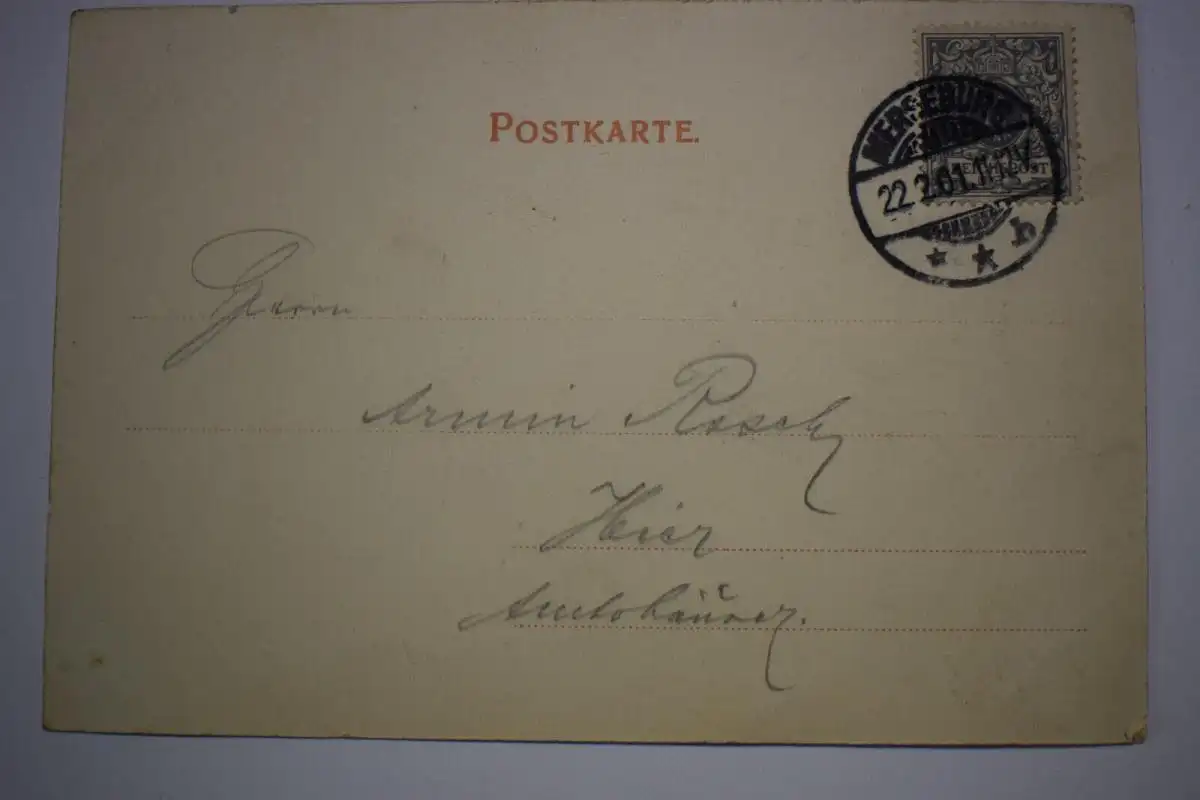 POSTKARTE.
MERSEBURG
22.2.01.11-12V
b
Herrn
Armin Rosch
Hier
Amtshäuser.